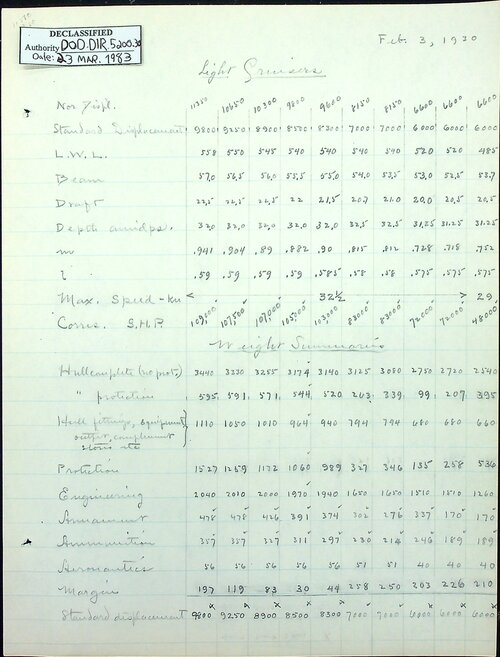 DECLASSIFIED
Authority DOD.DIR.5200.30
Date: 23 MAR. 1983
Feb. 3, 1930
Light Cruisers
Nor. Displ. 11350 10650 10300 9800 9600 8150 8150 6600 6600 6600
Standard Displacement 9800 9250 8900 8500 8300 7000 7000 6000 6000 6000
L.W.L. 558 550 545 540 540 540 540 520 520 485
Beam 57.0 56.5 56.0 55.5 55.0 54.0 53.5 53.0 52.5 53.7
Draft 22.5 22.5 22.5 22 21.5 20.7 21.0 20.0 20.5 20.5
Depth amidps. 32.0 32.0 32.0 32.0 32.0 32.5 32.5 31.25 31.25 31.25
m .941 .904 .89 .882 .90 .815 .812 .728 .718 .752
l .59 .59 .59 .59 .585 .58 .58 .575 .575 .575
Max. Speed - Kn < 32½ > 29
Corres. S.H.P. 109,000 107,500 107,000 105,000 103,000 83000 83000 72000 72000 48000
Weight Summaries
Hull complete (no prot.) 3440 3330 3255 3174 3140 3125 3080 2750 2720 2540
" protection 595 591 571 544 520 263 339 99 207 395
Hull fittings, equipment, 1110 1050 1010 964 940 794 794 680 680 660
outfit, complement
stores etc
Protection 1527 1259 1172 1060 989 327 346 135 258 536
Engineering 2040 2010 2000 1970 1940 1650 1650 1510 1510 1260
Armament 478 478 426 391 374 302 276 337 170 170
Ammunition 357 357 327 311 297 230 214 246 189 189
Aeronautics 56 56 56 56 56 51 51 40 40 40
Margin 197 119 83 30 44 258 250 203 226 210
Standard displacement 9800 9250 8900 8500 8300 7000 7000 6000 6000 6000